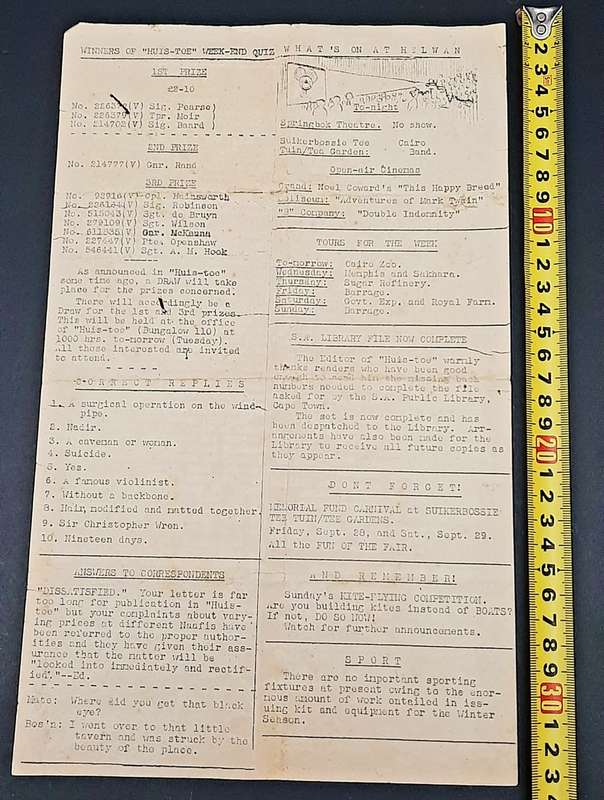 WINNERS OF "HUIS-TOE" WEEK-END QUIZ
1ST PRIZE
22-10
(V) Sig. Pearse)
(V) Tpr. Moir )
No. 214702(V) Sig. Baard )
2ND PRIZE
No. 214777(V) Gnr. Rand
3RD PRIZE
No. 93916(V) Cpl. Hainsworth
(V) Sig. Robinson
No. 515043(V) Sgt. de Bruyn
No. 279109(V) Sgt. Wilson
No. 611535(V) Gnr. McKenna
No. 227447(V) Pte. Openshaw
No. 546441(V) Sgt. A. M. Hook
As announced in "Huis-toe"
some time ago, a DRAW will take
place for the prizes concerned.
There will accordingly be a
Draw for the 1st and 3rd prizes.
This will be held at the office
of "Huis-toe" (Bungalow 110) at
1000 hrs. to-morrow (Tuesday).
All those interested are invited
to attend.
CORRECT REPLIES
1. A surgical operation on the wind-
pipe.
2. Nadir.
3. A caveman or woman.
4. Suicide.
5. Yes.
6. A famous violinist.
7. Without a backbone.
8. Hair, modified and matted together.
9. Sir Christopher Wren.
10. Nineteen days.
ANSWERS TO CORRESPONDENTS
"DISSATISFIED." Your letter is far
too long for publication in "Huis-
toe" but your complaints about vary-
ing prices at different Naafis have
been referred to the proper author-
ities and they have given their ass-
urance that the matter will be
"looked into immediately and rectif-
ied".--Ed.
Mate: Where did you get that black
eye?
Bos'n: I went over to that little
tavern and was struck by the
beauty of the place.
WHAT'S ON AT HELWAN
To-night
Springbok Theatre. No show.
Suikerbossie Tee Cairo
Tuin/Tea Garden: Band.
Open-air Cinemas
Grand: Noel Coward's "This Happy Breed"
Coliseum: "Adventures of Mark Twain"
"B" Company: "Double Indemnity"
TOURS FOR THE WEEK
To-morrow: Cairo Zoo.
Wednesday: Memphis and Sakhara.
Thursday: Sugar Refinery.
Friday: Barrage.
Saturday: Govt. Exp. and Royal Farm.
Sunday: Barrage.
S.A. LIBRARY FILE NOW COMPLETE
The Editor of "Huis-toe" warmly
thanks readers who have been good
enough to send him the missing back
numbers needed to complete the file
asked for by the S.A. Public Library,
Cape Town.
The set is now complete and has
been despatched to the Library. Arr-
angements have also been made for the
Library to receive all future copies as
they appear.
DONT FORGET!
MEMORIAL FUND CARNIVAL at SUIKERBOSSIE
TEE TUIN/TEE GARDENS.
Friday, Sept. 28, and Sat., Sept. 29.
All the FUN OF THE FAIR.
AND REMEMBER!
Sunday's KITE-FLYING COMPETITION.
Are you building kites instead of BOATS?
If not, DO SO NOW!
Watch for further announcements.
SPORT
There are no important sporting
fixtures at present owing to the enor-
mous amount of work entailed in iss-
uing kit and equipment for the Winter
Season.
2
3
4
5
6
7
8
9
10
1
2
3
4
5
6
7
8
9
20
1
2
3
4
5
6
7
8
9
30
1
2
3
4